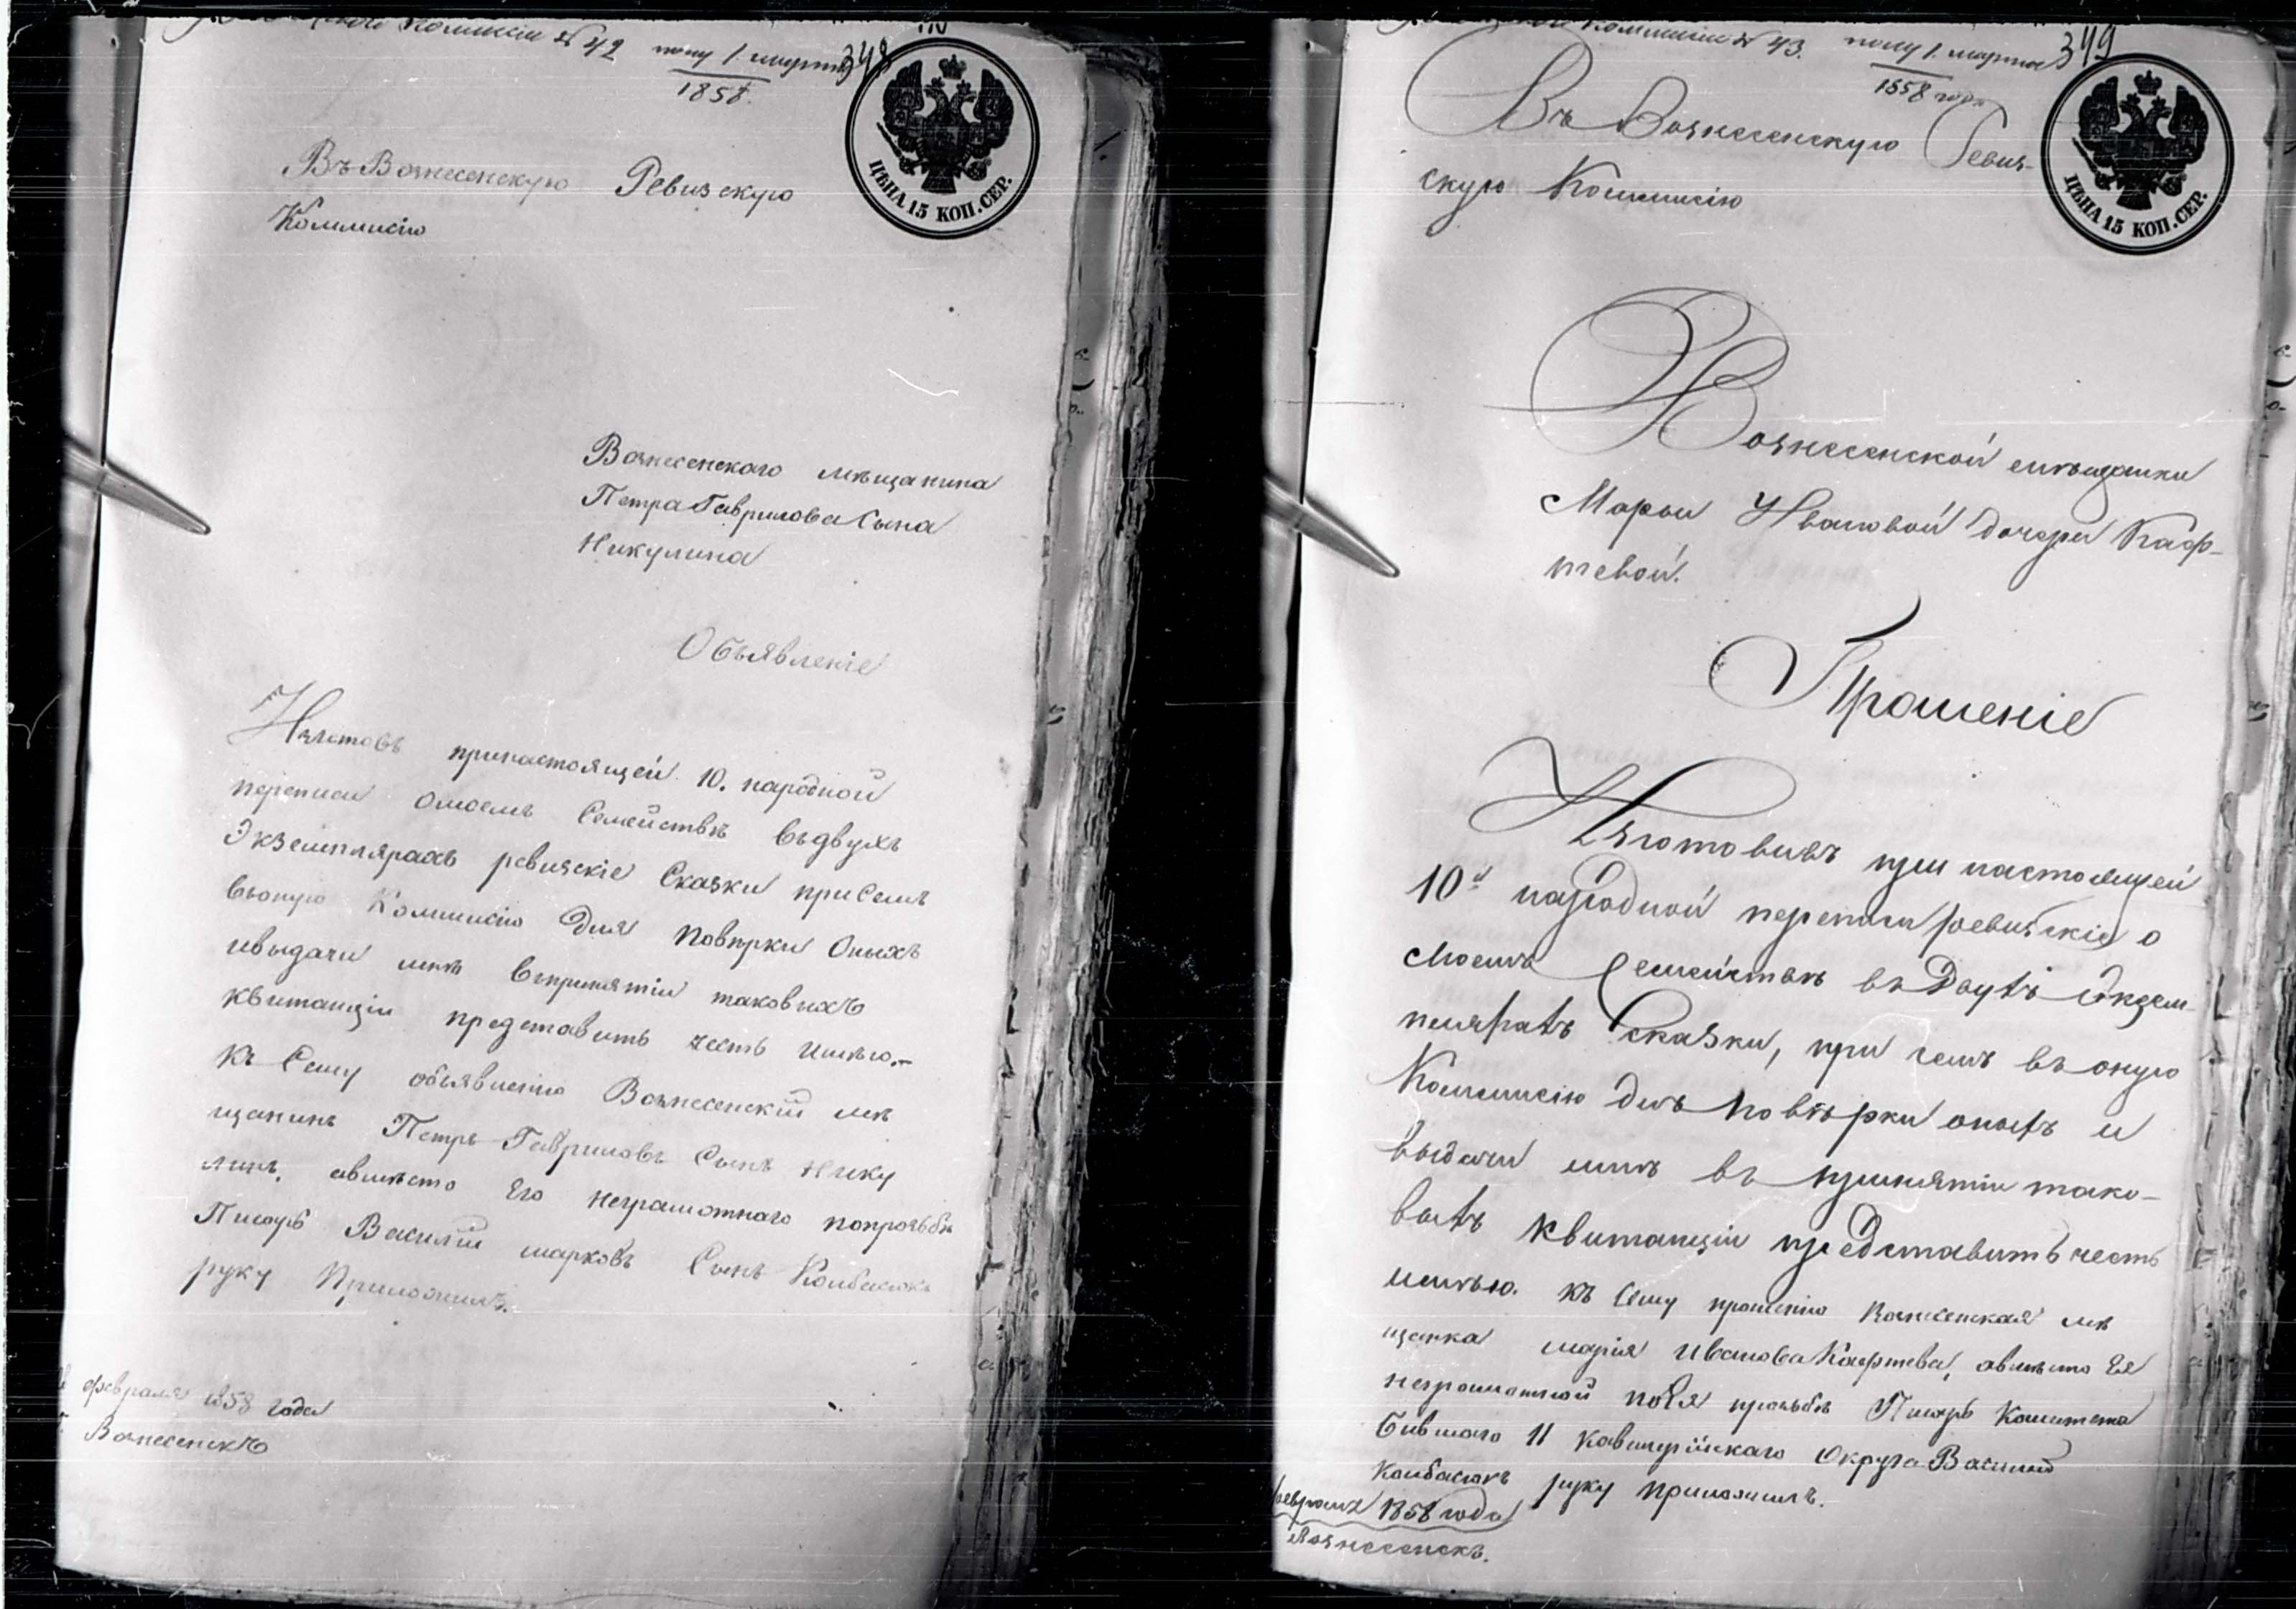 Коммисіи № 42 полу 1 марта 348
1858.
ЦѢНА 15 КОП. СЕР.
Въ Вознесенскую Ревизскую
Коммисію
Вознесенскаго мѣщанина
Петра Гаврилова Сына
Никулина
Объявленіе
Изготовъ принастоящей 10. народной
переписи омоемъ Семействѣ въдвухъ
Экземплярахъ ревизскіе Сказки приСемъ
въоную Коммисію для Повѣрки Оныхъ
ивыдачи мнѣ впринятіи таковыхъ
квитанціи представить честь имѣю.-
къ Сему объявленію Вознесенскій мѣ
щанинъ Петръ Гавриловъ Сынъ Нику
линъ, авмѣсто Его неграмотнаго попрозьбѣ
Писарь Василій марковъ Сынъ Колбасюкъ
руку Приложилъ.
февраля 1858 года
Вознесенскъ
Коммисіи № 43. полу 1. марта 349
1858 года
ЦѢНА 15 КОП. СЕР.
Въ Вознесенскую Ревиз-
скую Коммисію
Вознесенской мѣщанки
Марьи Ивановой дочери Каф-
тевой.
Прошеніе
Изготовивъ при настоящей
10й народной переписи ревизскіе о
моемъ Семействѣ въ Двухъ Экзем-
плярахъ Сказки, при семъ въ оную
Коммисію для повѣрки оныхъ и
выдачи мнѣ въ принятіи тако-
выхъ квитанціи представить честь
имѣю. къ Сему прошенію Вознесенская мѣ
щанка марія Иванова Кафтева, авмѣсто Ея
неграмотной поЕя прозьбѣ Писарь Комитета
Бившаго 11 Кавалерійскаго Округа Василій
Колбасюкъ руку приложилъ.
февраля 1858 года
Вознесенскъ.